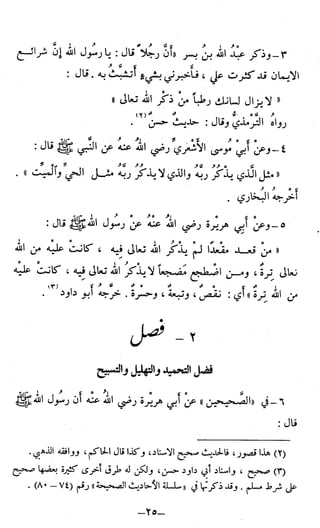 ٣ - وذكر عبدُ الله بنُ بسر «أنَّ رجُلاً قال : يا رسُول الله إنَّ شرائـع
الايمان قد كثرت علي ، فأخبرني بشيءٍ أتشبَّثُ به . قال :
« لا يزال لسانك رطباً منْ ذكْر الله تعالى »
رواهُ التِّرمذيُّ وقال : حديثٌ حسنٌ (٢) .
٤ - وعنْ أبي موسى الأشعريِّ رضي اللهُ عنهُ عن النَّبي ﷺ قال :
« مثل الَّذي يذْكر ربَّهُ والذي لا يذكُرُ ربَّهُ مثـل الحيِّ والميِّت » .
أخرجهُ البُخاري .
٥ - وعنْ أبي هريرة رضي اللهُ عنْهُ عن رسُول الله ﷺ قال :
« منْ قعـد مقْعداً لمْ يذْكُر الله تعالى فيه ، كانتْ عليْه من الله
تعالى تِرةٌ ، ومـن اضطجع مَضجعاً لا يذكُرُ الله تعالى فيه ، كانتْ عليْه
من الله تِرةٌ » أي : نقْصٌ ، وتبعةٌ ، وحسْرةٌ . خرَّجهُ أبو داود (٣) .
٢ - فصل
فضل التحميد والتهليل والتسبيح
٦ - في «الصَّحيحين» عنْ أبي هريرة رضي اللهُ عنْه أن رسُول الله ﷺ
قال :
(٢) هذا قصور ، فالحديث صحيح الاسناد ، وكذا قال الحاكم ، ووافقه الذهبي .
(٣) صحيح ، واسناد أبي داود حسن ، ولكن له طرق أخرى كثيرة بعضها صحيح
على شرط مسلم . وقد ذكرتها في « سلسلة الأحاديث الصحيحة » رقم (٧٤ - ٨٠) .
-٢٥-